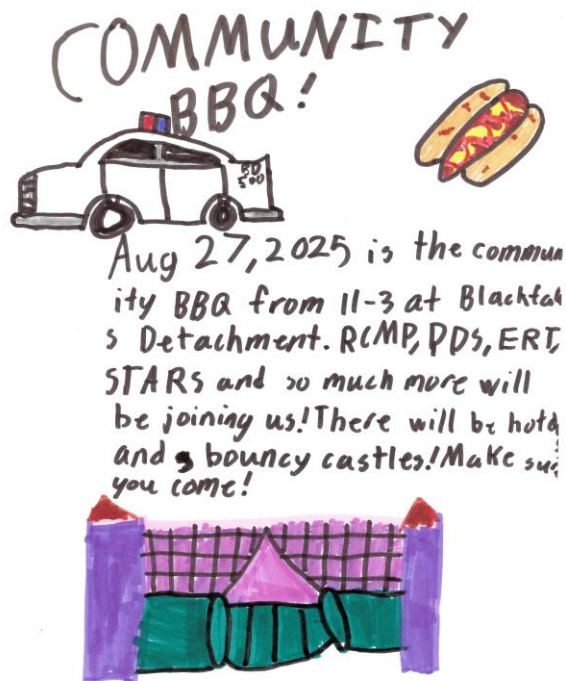 COMMUNITY
BBQ!
50
500
Aug 27, 2025 is the commun
ity BBQ from 11-3 at Blackfal
s Detachment. RCMP, PDS, ERT,
STARS and so much more will
be joining us! There will be hotd
and bouncy castles! Make su
you come!